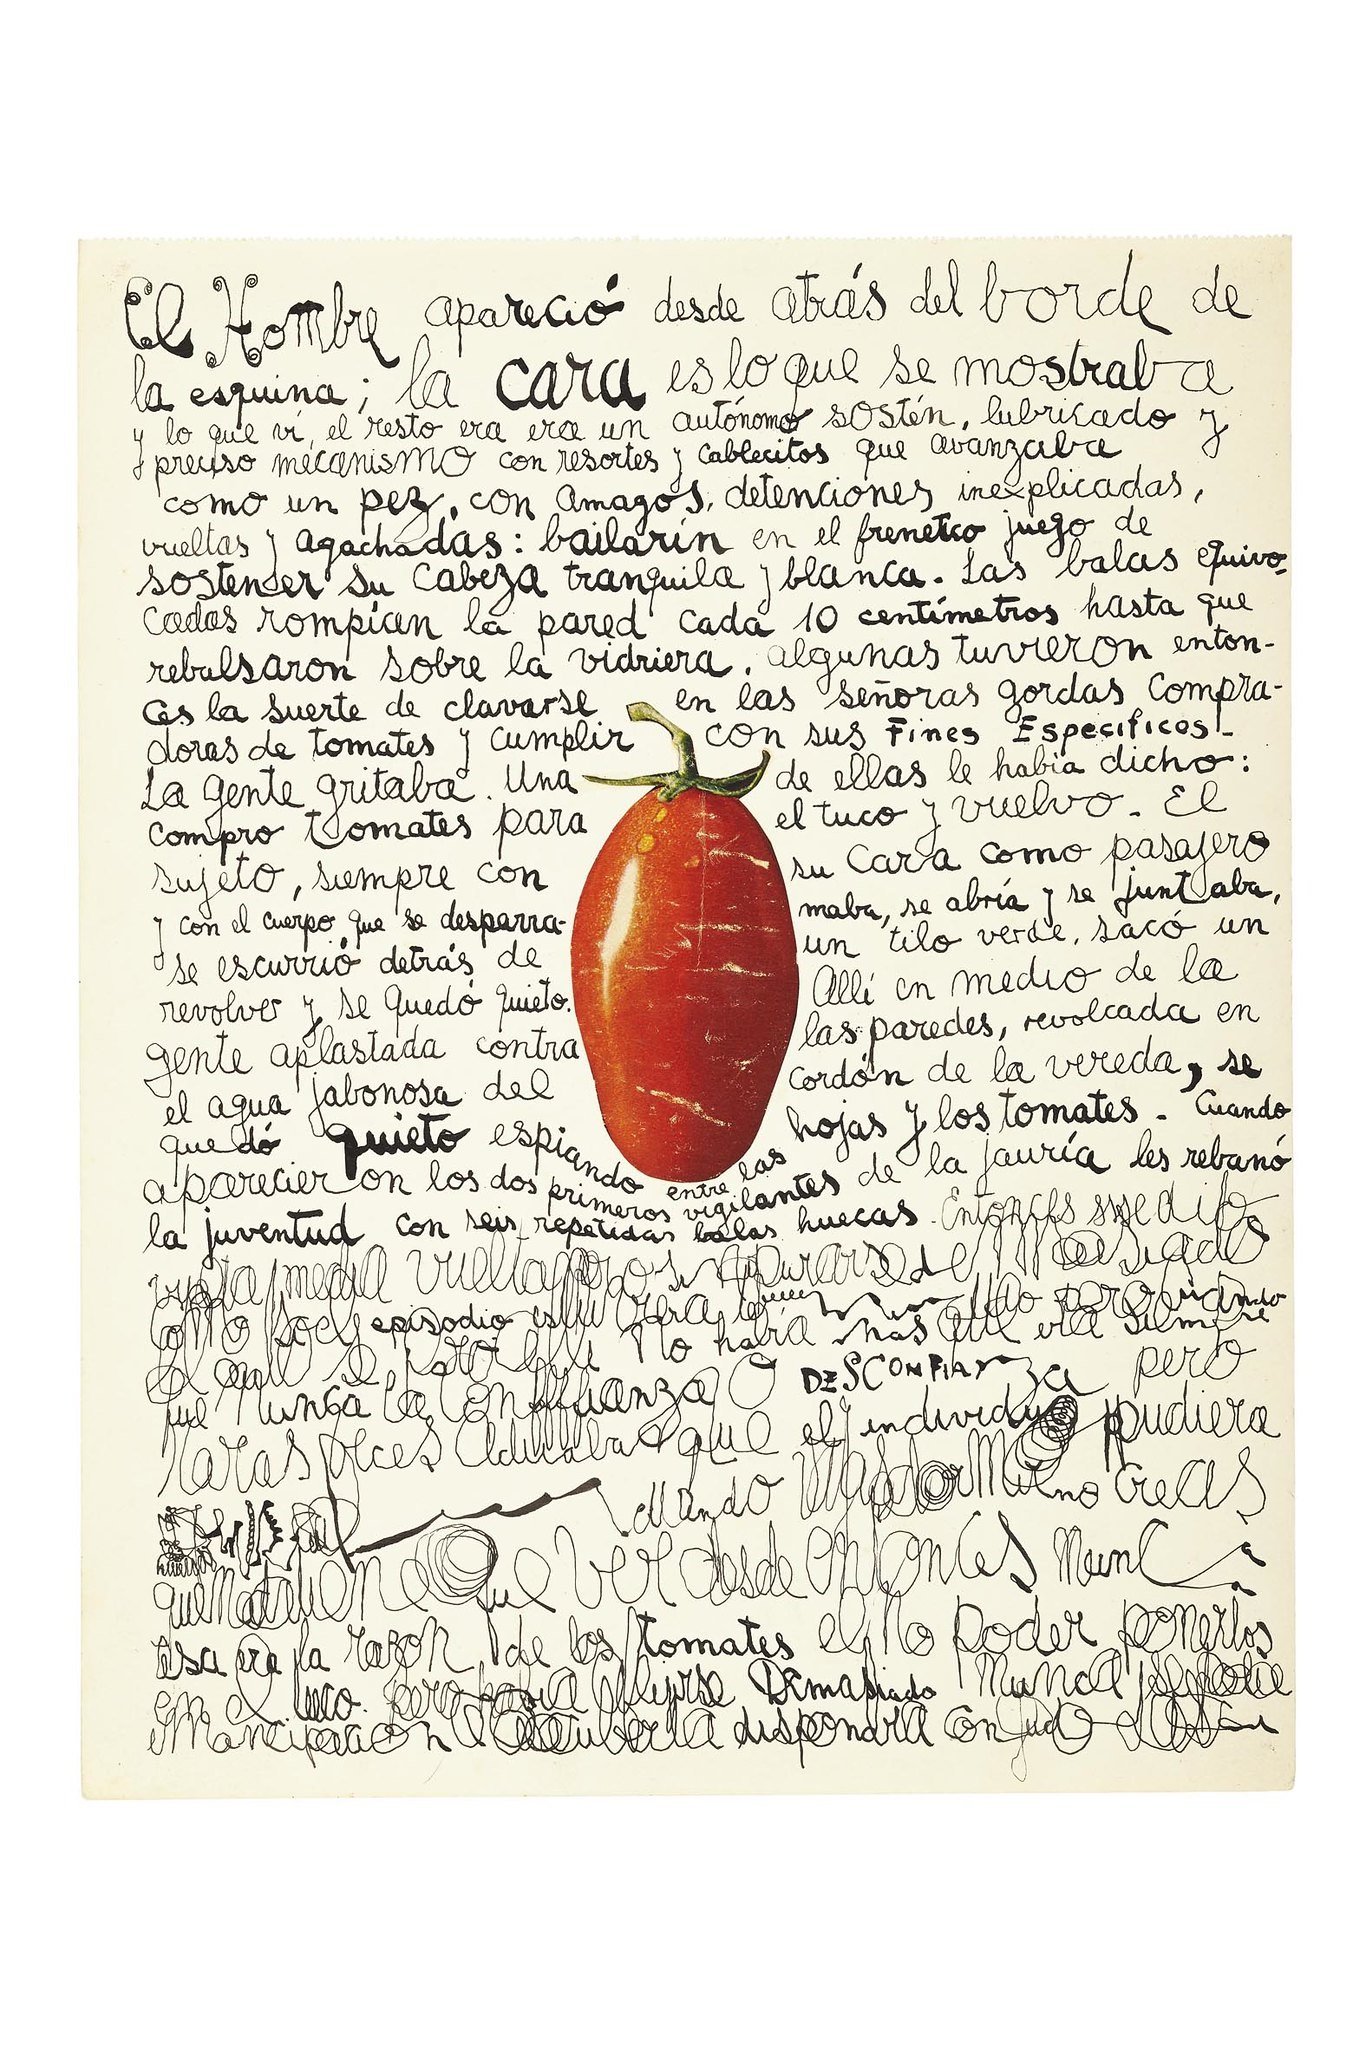 El Hombre apareció desde atrás del borde de
la esquina; la cara es lo que se mostraba
y lo que vi, el resto era era un autónomo sostén, lubricado y
preciso mecanismo con resortes y cablecitos que avanzaba
como un pez, con amagos, detenciones inexplicadas,
vueltas y agachadas: bailarín en el frenetico juego de
sostener su cabeza tranquila y blanca. Las balas equivo-
cadas rompían la pared cada 10 centímetros hasta que
rebalsaron sobre la vidriera. algunas tuvieron enton-
ces la suerte de clavarse en las señoras gordas compra-
doras de tomates y cumplir con sus Fines Específicos-
La gente gritaba. Una de ellas le había dicho:
compro tomates para el tuco y vuelvo. El
sujeto, siempre con su cara como pasajero
y con el cuerpo que se desparra- maba, se abría y se juntaba,
se escurrió detrás de un tilo verde, sacó un
revolver y se quedó quieto. Allí en medio de la
gente aplastada contra las paredes, revolcada en
el agua jabonosa del cordón de la vereda, se
quedó quieto espiando entre las hojas y los tomates. Cuando
aparecieron los dos primeros vigilantes de la jauría les rebanó
la juventud con seis repetidas balas huecas. Entonces
media vuelta
como episodio No había mas que era siempre
el que se
nunca la confianza o DESCONFIANza pero
raras veces que el individuo pudiera
Mundo creas
que ver desde entonces
esa era la razon de los tomates el no poder ponerlos
en el tuco. pero había Demasiado
emancipacion dispondra con